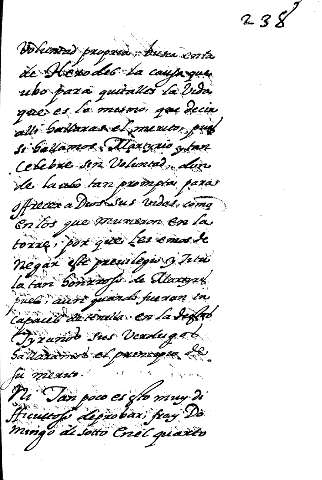 238
Voluntad propria: busca en la
de Herodes la causa que
ubo para quitalles la vida
que es lo mesmo que decir
alli hallaras el merito, pues
si hallamos Martyrio y tan
celebre sin Voluntad, don
de la ubo tan prompta para
offrecer a Dios sus vidas, como
en los que murieron en la
torre; por que les emos de
negar este previlegio y titu
lo tan honrroso de Martyri
pues aun quando fueran in
capaces de tenella en la de los
Tyranos sus Verdugos
hallaramos el principio de
su merito.
Ni Tan poco es esto muy di
fficultoso de probar; fray Do
mingo de Sotto en el quarto